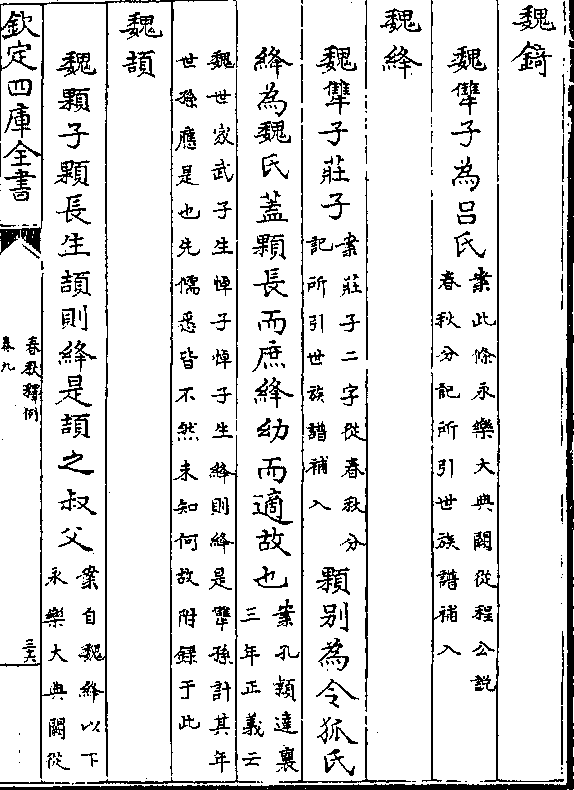 魏錡
魏犨子為呂氏案此條永樂大典闕從程公說
春秋分記所引世族譜補入
魏絳
魏犨子莊子案莊子二字從春秋分
記所引世族譜補入
顆別為令狐氏
絳為魏氏蓋顆長而庶絳幼而適故也案孔穎達襄
三年正義云
魏世家武子生悼子悼子生絳則絳是犨孫計其年
世孫應是也先儒悉皆不然未知何故附錄于此
魏頡
魏顆子顆長生頡則絳是頡之叔父案自魏絳以下
永樂大典闕從
欽定四庫全書
春秋釋例
卷九
三六